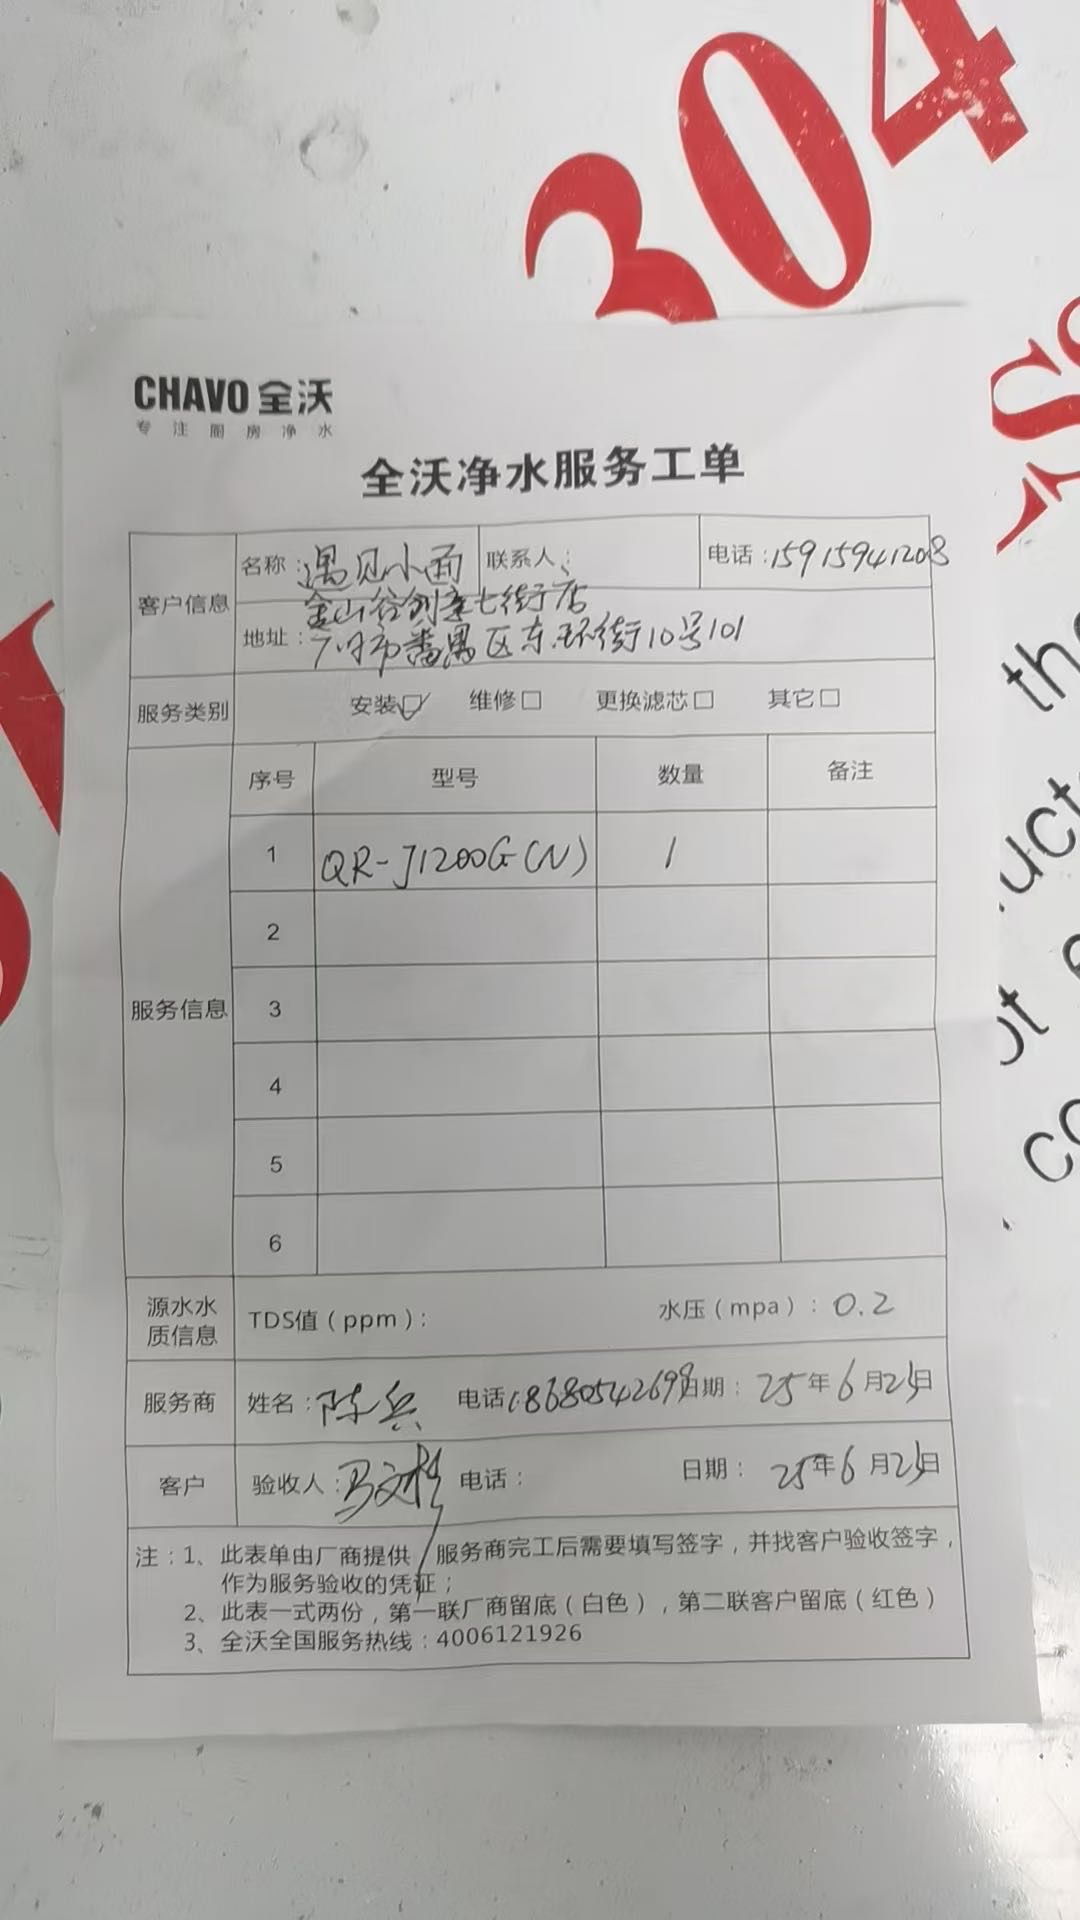 304
CHAVO 全沃
专注厨房净水
全沃净水服务工单
客户信息
名称：遇见小面
联系人：
电话：15915941208
金山谷创意七街店
地址：广州市番禺区东环街10号101
服务类别
安装☑ 维修□ 更换滤芯□ 其它□
服务信息
序号 型号 数量 备注
1 QR-J1200G(N) 1
2
3
4
5
6
源水水质信息
TDS值（ppm）： 水压（mpa）：0.2
服务商
姓名：陈兵 电话：18680542699 日期：25年6月25日
客户
验收人： 电话： 日期：25年6月25日
注：1、此表单由厂商提供，服务商完工后需要填写签字，并找客户验收签字，
作为服务验收的凭证；
2、此表一式两份，第一联厂商留底（白色），第二联客户留底（红色）
3、全沃全国服务热线：4006121926